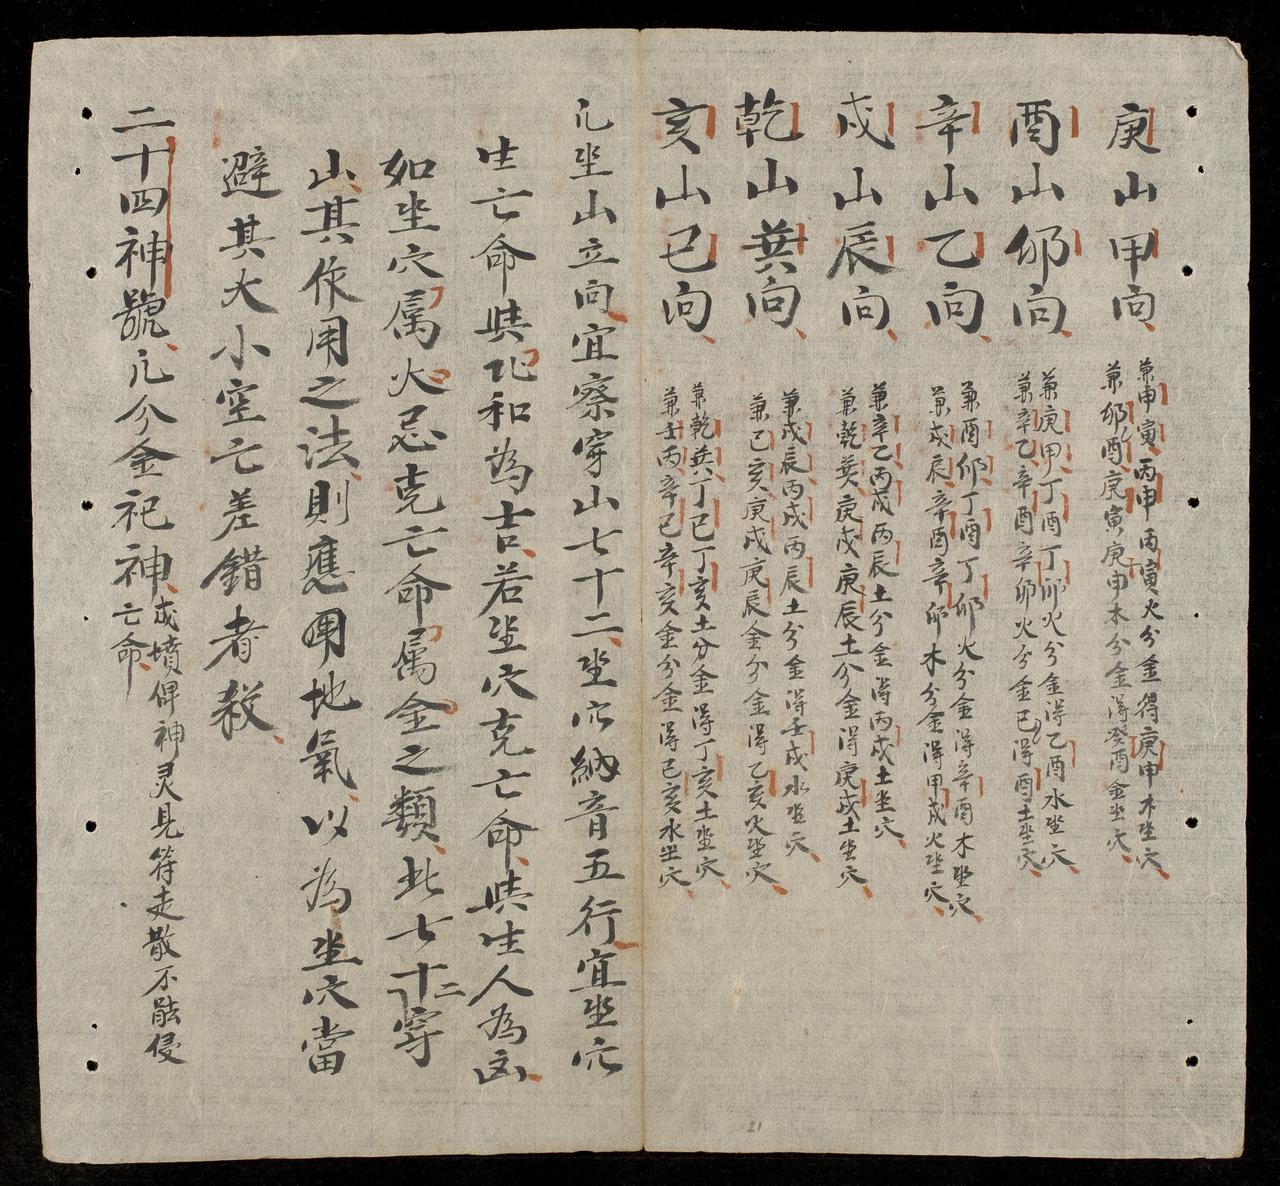 庚山甲向
兼申寅丙申丙寅火分金得庚申木坐穴
兼卯酉庚寅庚申木分金得癸酉金坐穴
酉山卯向
兼庚甲丁酉丁卯火分金得乙酉水坐穴
兼辛乙辛酉辛卯火分金已得酉土坐穴
辛山乙向
兼酉卯丁酉丁卯火分金得辛酉木坐穴
兼戌辰辛酉辛卯木分金得甲戌火坐穴
戌山辰向
兼辛乙丙戌丙辰土分金得丙戌土坐穴
兼乾巽庚戌庚辰土分金得庚戌土坐穴
乾山巽向
兼戌辰丙戌丙辰土分金得壬戌水坐穴
兼巳亥庚戌庚辰金分金得乙亥火坐穴
亥山巳向
兼乾巽丁巳丁亥土分金得丁亥土坐穴
兼壬丙辛巳辛亥金分金得己亥水坐穴
凡坐山立向宜察穿山七十二坐穴納音五行宜坐穴
生亡命與比和為吉若坐穴克亡命與生人為凶
如坐穴属火忌克亡命属金之類此七十二穿
山其作用之法則應用地氣以為坐穴當
避其大小空亡差錯者殺
二十四神號凡分金祀神亡命
成墳俾神灵見符走散不能侵